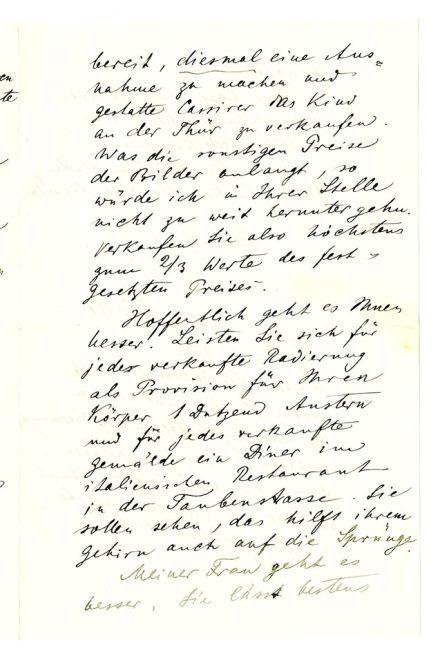 en
te
bereit, diesmal eine Aus=
nahme zu machen und
gestatte Cassirer das Kind
an der Thür zu verkaufen.
Was die sonstigen Preise
der Bilder anlangt, so
würde ich in Ihrer Stelle
nicht zu weit herunter gehn.
Verkaufen Sie also höchstens
zum 2/3 Werte des fest=
gesetzten Preises.
Hoffentlich geht es Ihnen
besser. Leisten Sie sich für
jede verkaufte Radierung
als Provision für Ihren
Körper 1 Dutzend Austern
und für jedes verkaufte
Gemälde ein Diner im
italienischen Restaurant
in der Taubenstrasse. Sie
sollen sehen, das hilft ihrem
Gehirn auch auf die Sprünge.
Meiner Frau geht es
besser. Sie lässt bestens